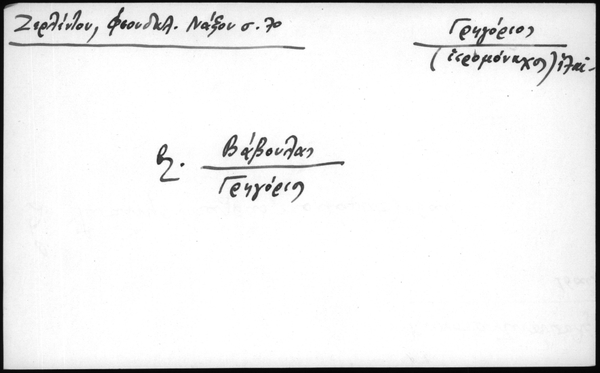 Ζερλέντου, Φεουδαλ. Νάξου σ. 70
Γρηγόριος
(ιερομόναχος)
β.
Βάβουλας
Γρηγόριος